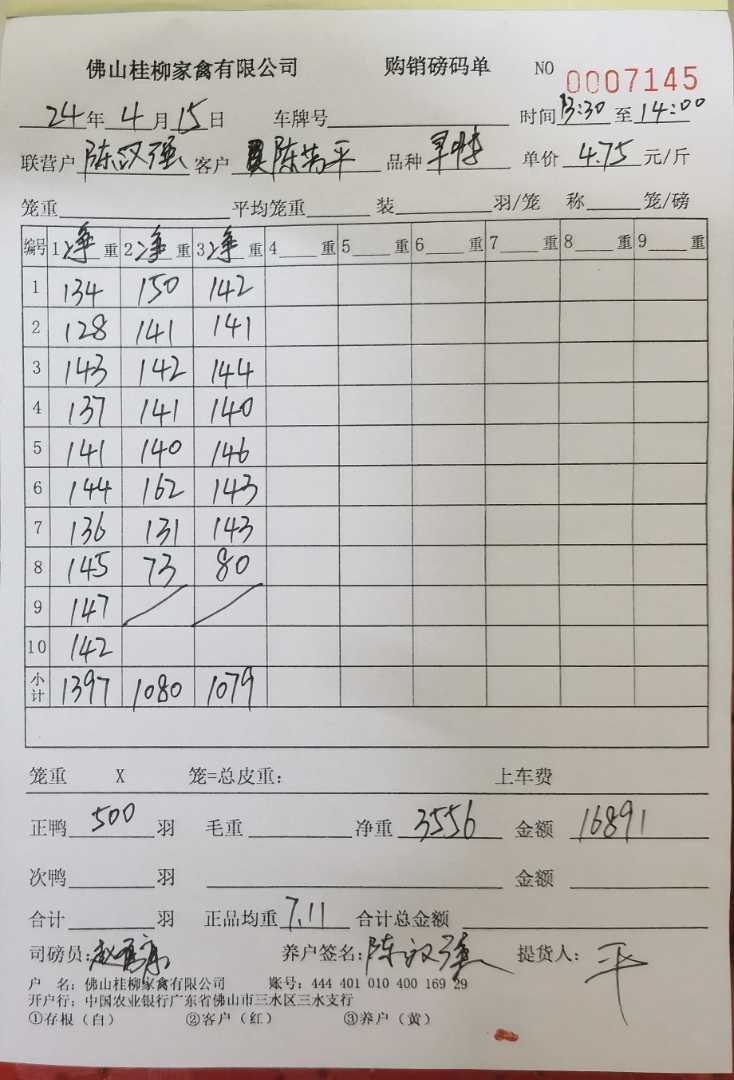 佛山桂柳家禽有限公司 购销磅码单 NO 0007145
24年 4月 15日 车牌号 时间 13:30 至 14:00
联营户 陈汉强 客户 陈苟平 品种 单价 4.75 元/斤
笼重 平均笼重 装 羽/笼 称 笼/磅
编号 1 净 重 2 净 重 3 净 重 4 重 5 重 6 重 7 重 8 重 9 重
1 134 150 142
2 128 141 141
3 143 142 144
4 137 141 140
5 141 140 146
6 144 162 143
7 136 131 143
8 145 73 80
9 147
10 142
小计 1397 1080 1079
笼重 X 笼=总皮重: 上车费
正鸭 500 羽 毛重 净重 3556 金额 16891
次鸭 羽 金额
合计 羽 正品均重 7.11 合计总金额
司磅员: 养户签名: 陈汉强 提货人: 平
户 名: 佛山桂柳家禽有限公司 账号: 444 401 010 400 169 29
开户行: 中国农业银行广东省佛山市三水区三水支行
①存根（白） ②客户（红） ③养户（黄）